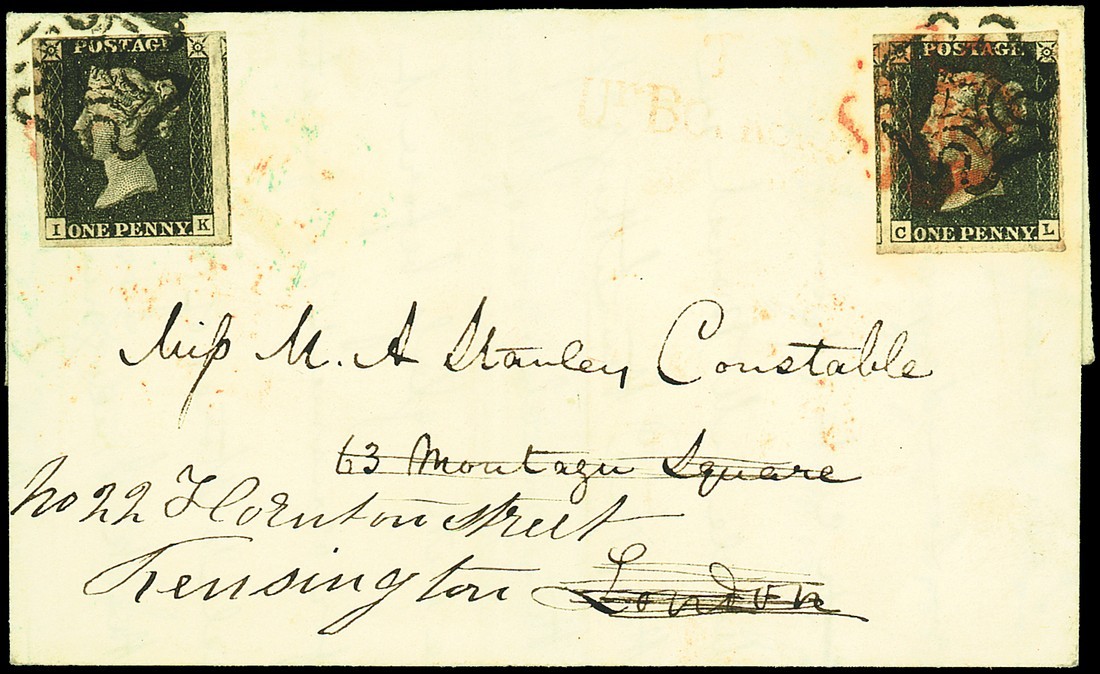 POSTAGE
I K
ONE PENNY
POSTAGE
C L
ONE PENNY
Miſs M. A Stanley Constable
63 Montagu Square
No 22 Hornton Street
Kensington London